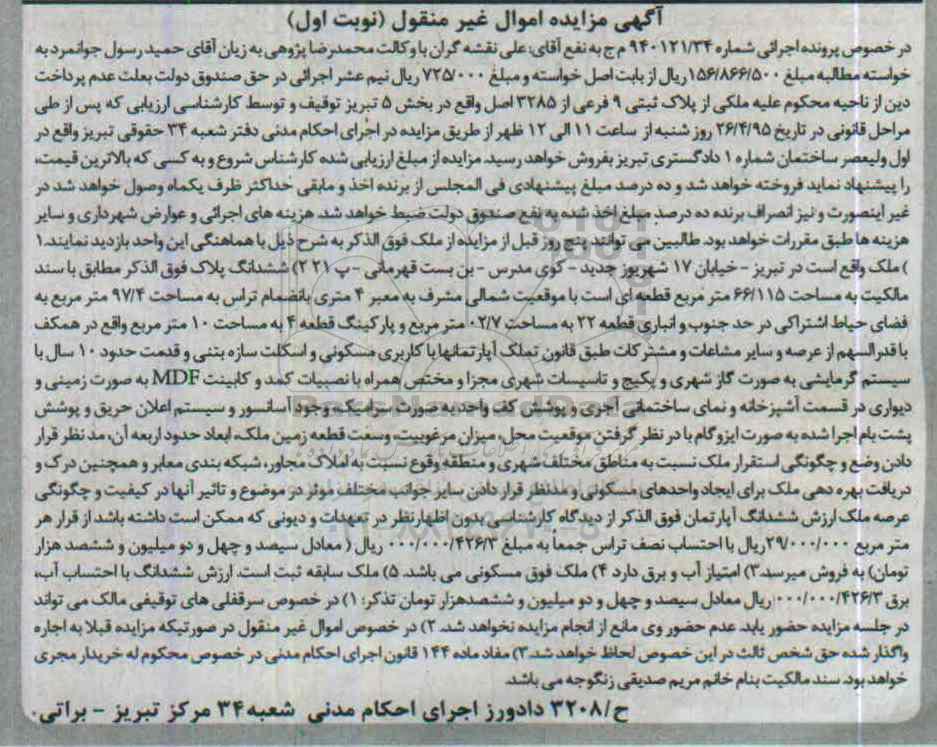 آگهی مزایده اموال غیر منقول (نوبت اول)
در خصوص پرونده اجرائی شماره ۹۴۰۱۲۱/۳۴ م ج به نفع آقای: علی نقشه گران با وکالت محمدرضا پژوهی به زیان آقای حمید رسول جوانمرد به
خواسته مطالبه مبلغ ۱۵۶/۸۶۶/۵۰۰ ریال از بابت اصل خواسته و مبلغ ۷۲۵/۰۰۰ ریال نیم عشر اجرائی در حق صندوق دولت بعلت عدم پرداخت
دین از ناحیه محکوم علیه ملکی از پلاک ثبتی ۹ فرعی از ۳۲۸۵ اصل واقع در بخش ۵ تبریز توقیف و توسط کارشناسی ارزیابی که پس از طی
مراحل قانونی در تاریخ ۲۶/۴/۹۵ روز شنبه از ساعت ۱۱ الی ۱۲ ظهر از طریق مزایده در اجرای احکام مدنی دفتر شعبه ۳۴ حقوقی تبریز واقع در
اول ولیعصر ساختمان شماره ۱ دادگستری تبریز بفروش خواهد رسید. مزایده از مبلغ ارزیابی شده کارشناس شروع و به کسی که بالاترین قیمت،
را پیشنهاد نماید فروخته خواهد شد و ده درصد مبلغ پیشنهادی فی المجلس از برنده اخذ و مابقی حداکثر ظرف یکماه وصول خواهد شد در
غیر اینصورت و نیز انصراف برنده ده درصد مبلغ اخذ شده به نفع صندوق دولت ضبط خواهد شد. هزینه های اجرائی و عوارض شهرداری و سایر
هزینه ها طبق مقررات خواهد بود. طالبین می توانند پنج روز قبل از مزایده از ملک فوق الذکر به شرح ذیل با هماهنگی این واحد بازدید نمایند. ۱
) ملک واقع است در تبریز - خیابان ۱۷ شهریور جدید - کوی مدرس - بن بست قهرمانی - پ ۲۱ ۲) ششدانگ پلاک فوق الذکر مطابق با سند
مالکیت به مساحت ۶۶/۱۱۵ متر مربع قطعه ای است با موقعیت شمالی مشرف به معبر ۴ متری بانضمام تراس به مساحت ۹۷/۴ متر مربع به
فضای حیاط اشتراکی در حد جنوب و انباری قطعه ۲۲ به مساحت ۰۲/۷ متر مربع و پارکینگ قطعه ۴ به مساحت ۱۰ متر مربع واقع در همکف
با قدرالسهم از عرصه و سایر مشاعات و مشترکات طبق قانون تملک آپارتمانها با کاربری مسکونی و اسکلت سازه بتنی و قدمت حدود ۱۰ سال با
سیستم گرمایشی به صورت گاز شهری و پکیج و تاسیسات شهری مجزا و مختص همراه با نصبیات کمد و کابینت MDF به صورت زمینی و
دیواری در قسمت آشپزخانه و نمای ساختمانی آجری و پوشش کف واحد به صورت سرامیک، وجود آسانسور و سیستم اعلان حریق و پوشش
پشت بام اجرا شده به صورت ایزوگام با در نظر گرفتن موقعیت محل، میزان مرغوبیت، وسعت قطعه زمین ملک، ابعاد حدود اربعه آن، مد نظر قرار
دادن وضع و چگونگی استقرار ملک نسبت به مناطق مختلف شهری و منطقه وقوع نسبت به املاک مجاور، شبکه بندی معابر و همچنین درک و
دریافت بهره دهی ملک برای ایجاد واحدهای مسکونی و مدنظر قرار دادن سایر جوانب مختلف موثر در موضوع و تاثیر آنها در کیفیت و چگونگی
عرصه ملک ارزش ششدانگ آپارتمان فوق الذکر از دیدگاه کارشناسی بدون اظهارنظر در تعهدات و دیونی که ممکن است داشته باشد از قرار هر
متر مربع ۲۹/۰۰۰/۰۰۰ ریال با احتساب نصف تراس جمعاً به مبلغ ۰۰۰/۰۰۰/۴۲۶/۳ ریال ( معادل سیصد و چهل و دو میلیون و ششصد هزار
تومان) به فروش میرسد. ۳) امتیاز آب و برق دارد ۴) ملک فوق مسکونی می باشد. ۵) ملک سابقه ثبت است. ارزش ششدانگ با احتساب آب،
برق ۰۰۰/۰۰۰/۴۲۶/۳ ریال معادل سیصد و چهل و دو میلیون و ششصدهزار تومان تذکر: ۱) در خصوص سرقفلی های توقیفی مالک می تواند
در جلسه مزایده حضور یابد. عدم حضور وی مانع از انجام مزایده نخواهد شد. ۲) در خصوص اموال غیر منقول در صورتیکه مزایده قبلا به اجاره
واگذار شده حق شخص ثالث در این خصوص لحاظ خواهد شد. ۳) مفاد ماده ۱۴۴ قانون اجرای احکام مدنی در خصوص محکوم له خریدار مجری
خواهد بود. سند مالکیت بنام خانم مریم صدیقی زنگوجه می باشد.
ح/۳۲۰۸ دادورز اجرای احکام مدنی شعبه ۳۴ مرکز تبریز - براتی.